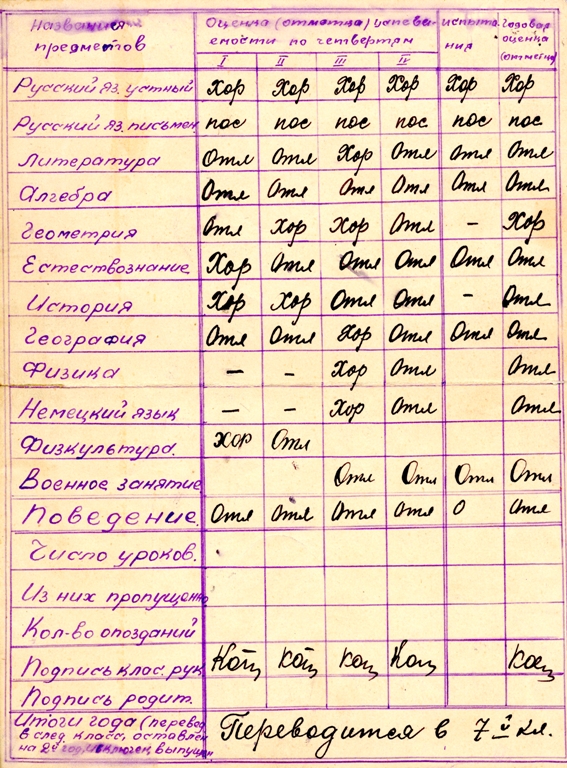 Названия Оценка (отметка) успева- испыта- годовая
предметов емости по четвертям ния оценка
I II III IV (отметка)
Русский яз. устный Хор Хор Хор Хор Хор Хор
Русский яз. письмен. пос пос пос пос пос пос
Литература Отл Отл Хор Отл Отл Отл
Алгебра Отл Отл Отл Отл Отл Отл
Геометрия Отл Хор Хор Отл – Хор
Естествознание Хор Отл Отл Отл Отл Отл
История Хор Хор Отл Отл – Отл
География Отл Отл Хор Отл Отл Отл
Физика – – Хор Отл Отл
Немецкий язык – – Хор Отл Отл
Физкультура. Хор Отл
Военное занятие Отл Отл Отл Отл
Поведение. Отл Отл Отл Отл О Отл
Число уроков.
Из них пропущенно
Кол-во опозданий
Подпись клас. рук.
Подпись родит.
Итоги года (перевод
в след. класс, оставлен
на 2й год, исключен, выпущен
Переводится в 7й кл.